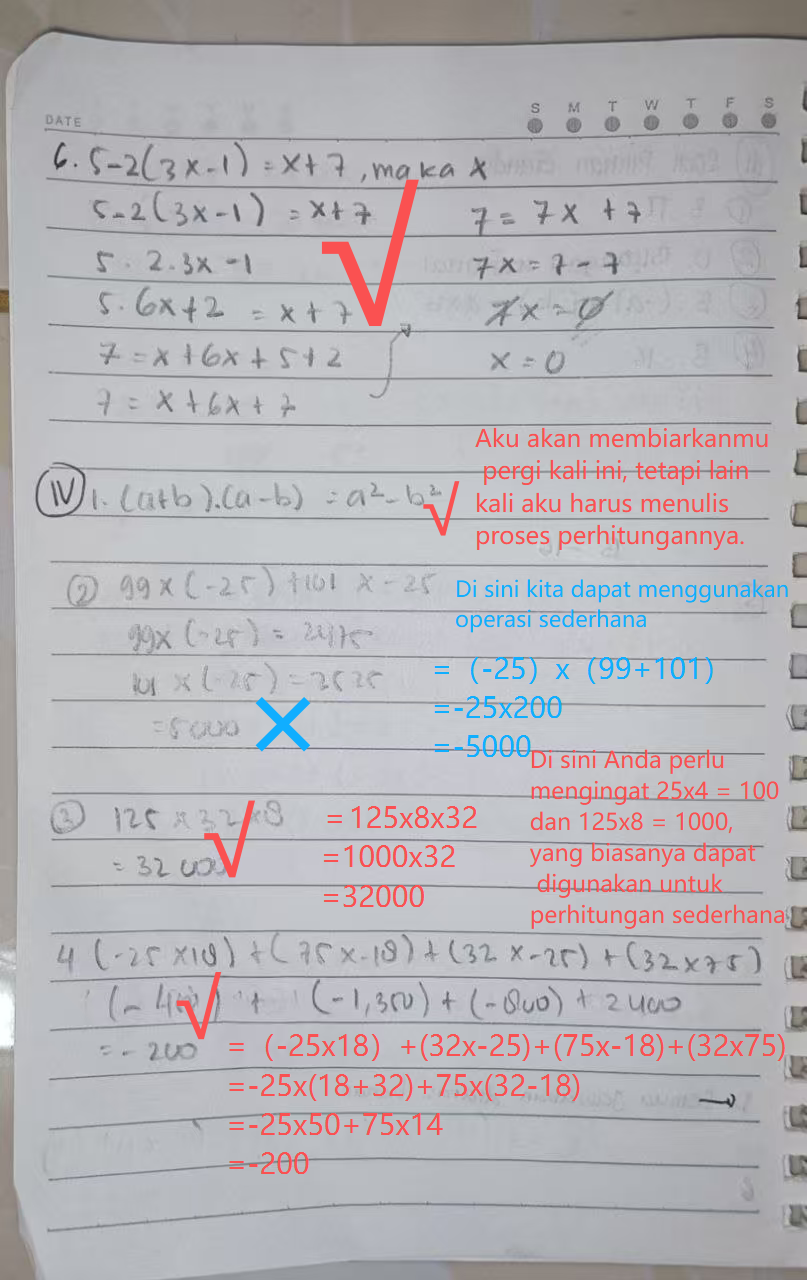 DATE
S M T W T F S
6. 5-2(3x-1) = x+7, maka x
5-2(3x-1) = x+7
5. 2.3x-1
5. 6x+2 = x+7
7 = x+6x+5+2
7 = x+6x+7
7 = 7x + 7
7x = 7-7
7x = 0
x = 0
Aku akan membiarkanmu
pergi kali ini, tetapi lain
kali aku harus menulis
proses perhitungannya.
IV 1. (a+b).(a-b) = a²-b²
② 99 x (-25) + 101 x -25
99x (-25) = 2475
101 x (-25) = 2525
= 5000
Di sini kita dapat menggunakan
operasi sederhana
= (-25) x (99+101)
=-25x200
=-5000
③ 125 x 32 x 8
= 32 000
= 125x8x32
=1000x32
=32000
Di sini Anda perlu
mengingat 25x4 = 100
dan 125x8 = 1000,
yang biasanya dapat
digunakan untuk
perhitungan sederhana
4 (-25 x 18) + (75 x -18) + (32 x -25) + (32 x 75)
+ (-1,350) + (-800) + 2400
= - 200
= (-25x18) +(32x-25)+(75x-18)+(32x75)
=-25x(18+32)+75x(32-18)
=-25x50+75x14
=-200